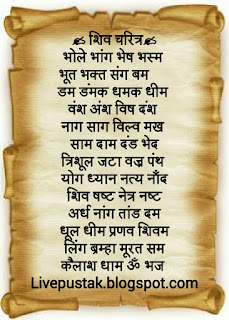 शिव चरित्र
भोले भांग भेष भस्म
भूत भक्त संग बम
डम डंमक धमक धीम
वंश अंश विष दंश
नाग साग विल्व मख
साम दाम दंड भेद
त्रिशूल जटा वज्र पंथ
योग ध्यान नत्य नाँद
शिव षष्ट नेत्र नष्ट
अर्ध नांग तांड दम
धूल धीम प्रणव शिवम
लिंग ब्रम्हा मूरत सम
कैलाश धाम ॐ भज
Livepustak.blogspot.com